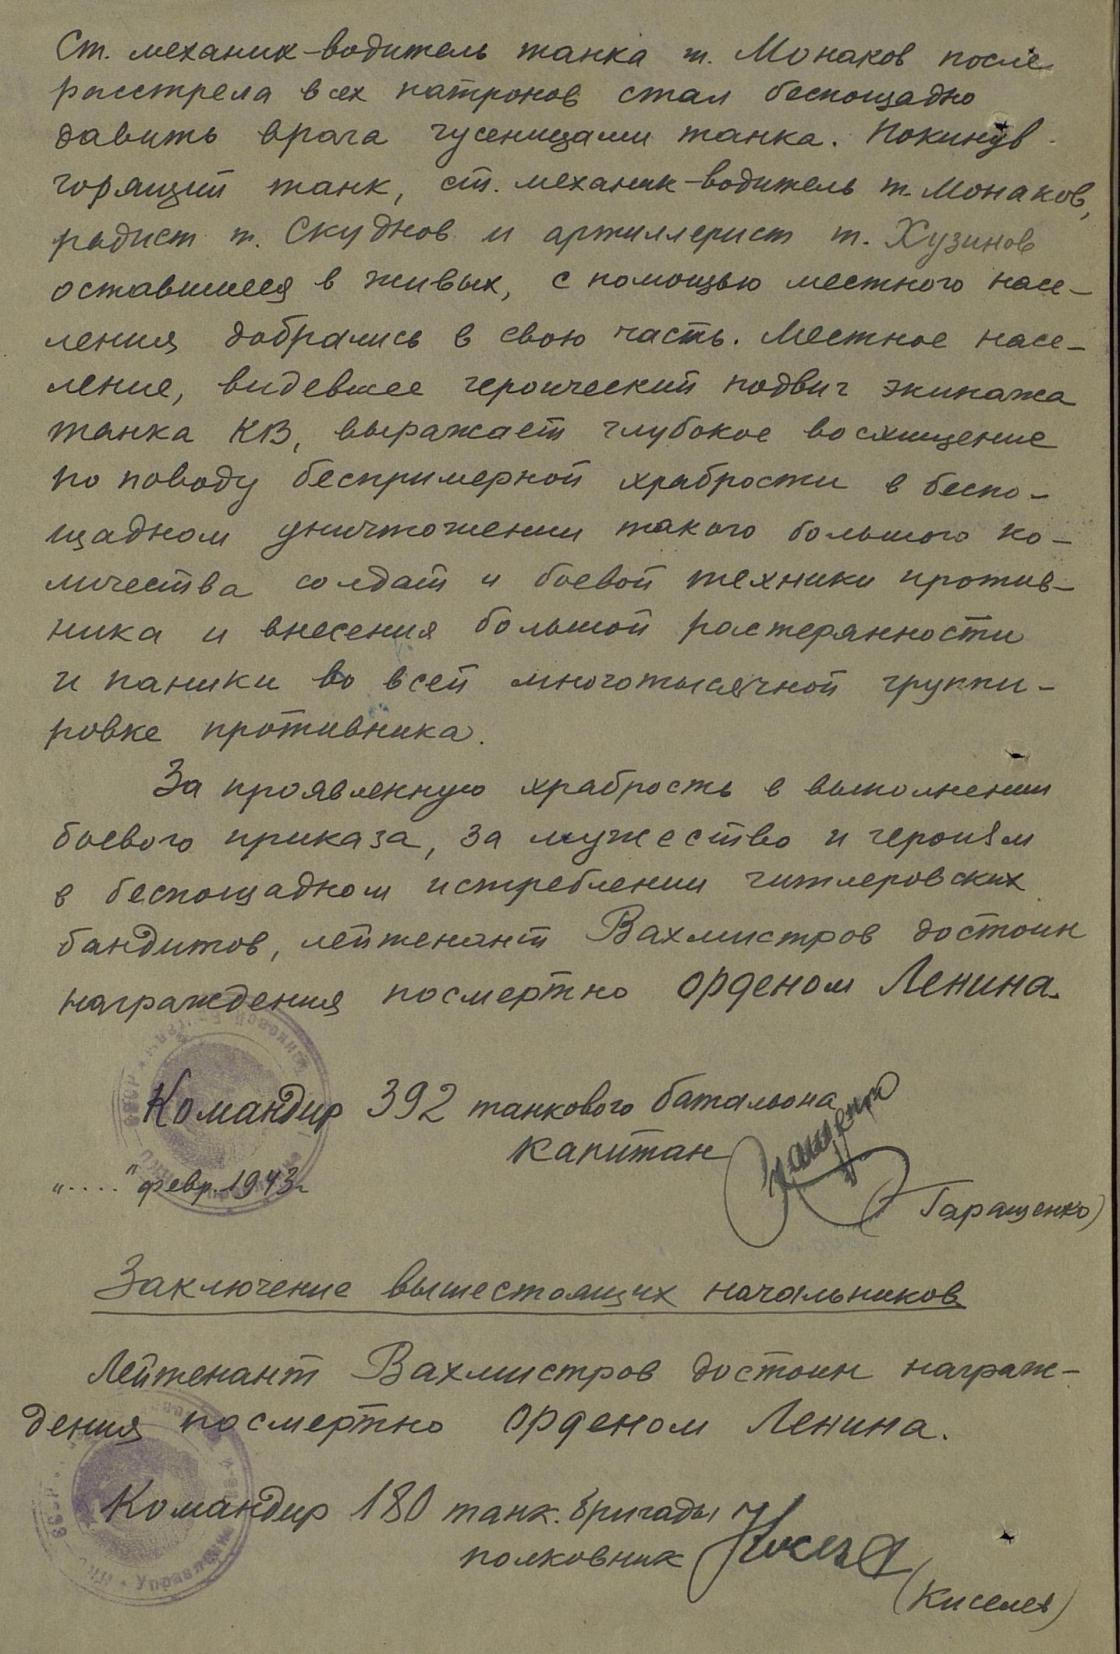 Ст. механик-водитель танка т. Монаков после
расстрела всех патронов стал беспощадно
давить врага гусеницами танка. Покинув
горящий танк, ст. механик-водитель т. Монаков,
радист т. Скуднов и артиллерист т. Хузинов
оставшиеся в живых, с помощью местного насе-
ления добрались в свою часть. Местное насе-
ление, видевшее героический подвиг экипажа
танка КВ, выражает глубокое восхищение
по поводу беспримерной храбрости в беспо-
щадном уничтожении такого большого ко-
личества солдат и боевой техники против-
ника и внесения большой растерянности
и паники во всей многотысячной группи-
ровке противника.
За проявленную храбрость в выполнении
боевого приказа, за мужество и героизм
в беспощадном истреблении гитлеровских
бандитов, лейтенант Вахмистров достоин
награждения посмертно орденом Ленина.
Командир 392 танкового батальона
капитан
"...." февр. 1943г
(Гаращенко)
Заключение вышестоящих начальников
Лейтенант Вахмистров достоин награж-
дения посмертно орденом Ленина.
Командир 180 танк. бригады
полковник
(Киселев)